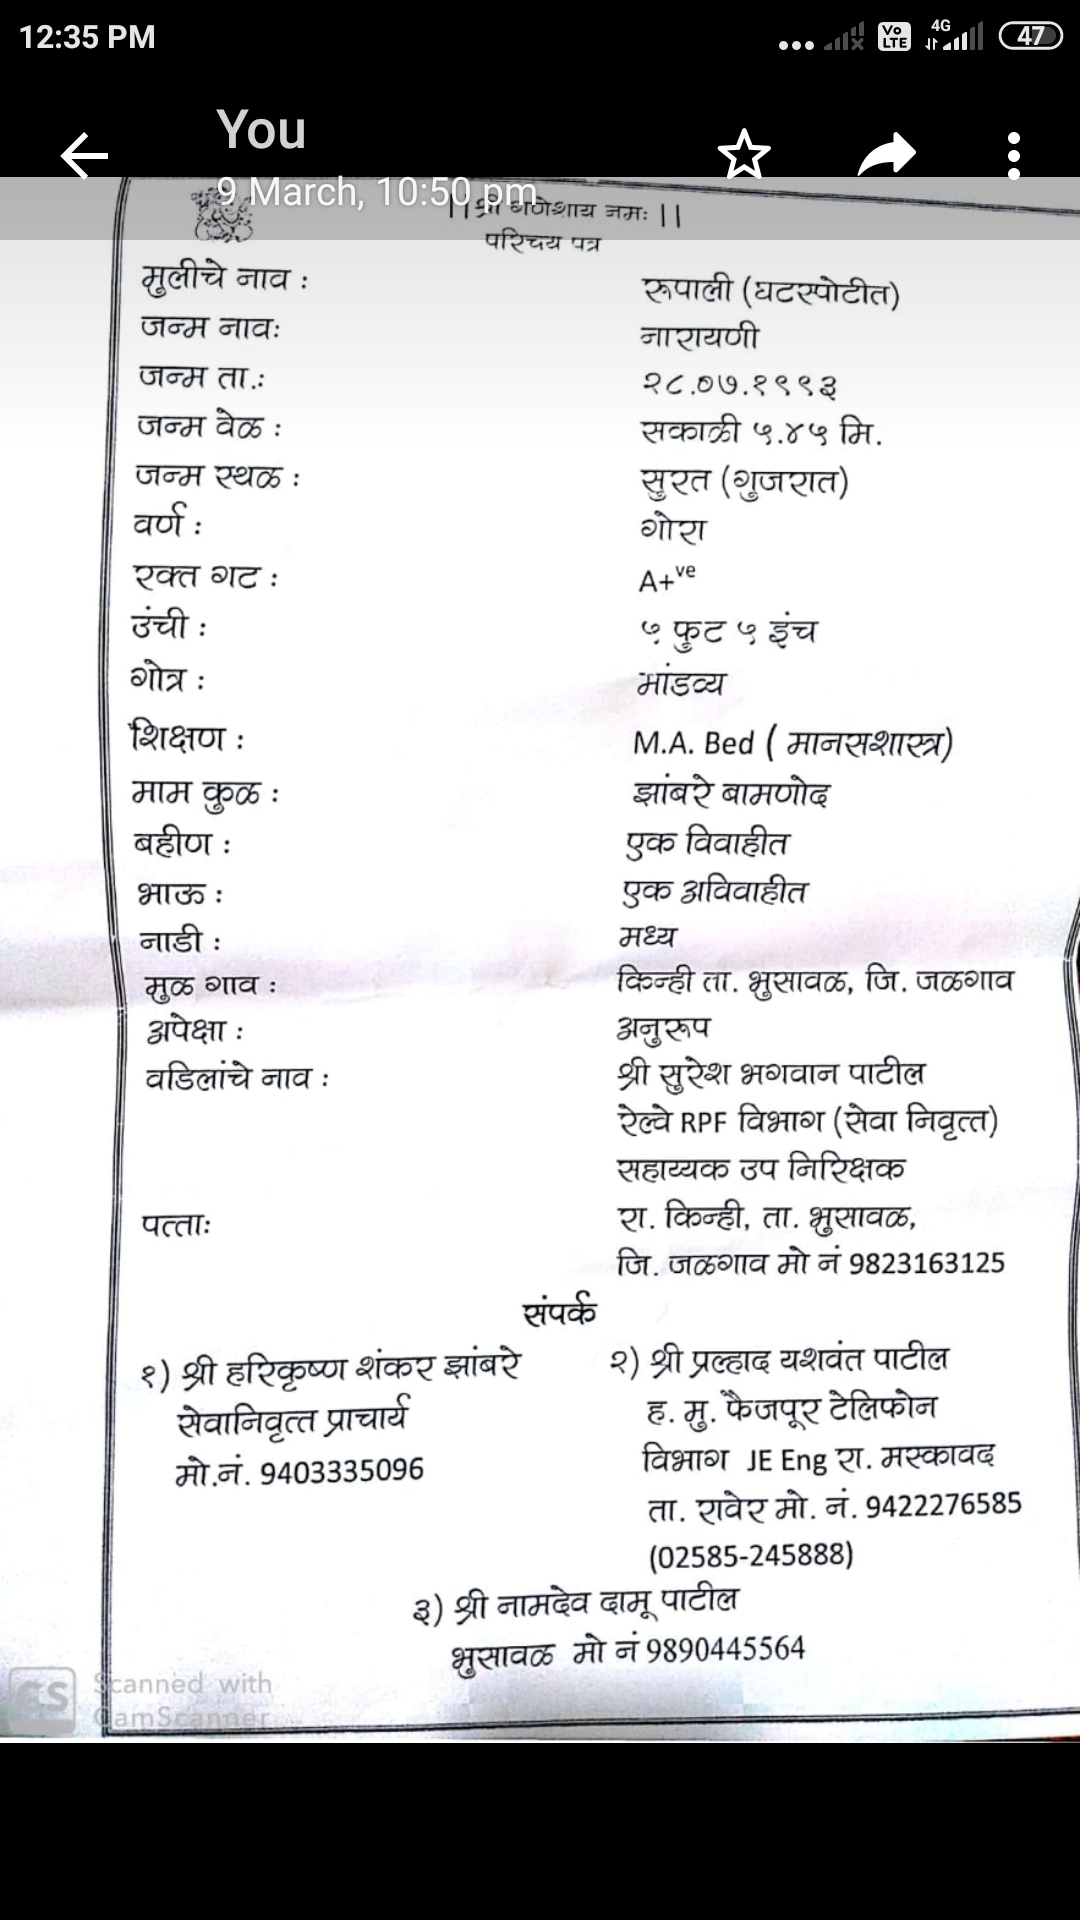 12:35 PM
Vo LTE 4G 47
You
9 March, 10:50 pm
||श्री गणेशाय नमः||
परिचय पत्र
मुलीचे नाव : रूपाली (घटस्पोटीत)
जन्म नावः नारायणी
जन्म ता.: २८.०७.१९९३
जन्म वेळ : सकाळी ५.४५ मि.
जन्म स्थळ : सुरत (गुजरात)
वर्ण : गोरा
रक्त गट : A+ve
उंची : ५ फुट ५ इंच
गोत्र : मांडव्य
शिक्षण : M.A. Bed ( मानसशास्त्र)
माम कुळ : झांबरे बामणोद
बहीण : एक विवाहीत
भाऊ : एक अविवाहीत
नाडी : मध्य
मुळ गाव : किन्ही ता. भुसावळ, जि. जळगाव
अपेक्षा : अनुरूप
वडिलांचे नाव : श्री सुरेश भगवान पाटील
रेल्वे RPF विभाग (सेवा निवृत्त)
सहाय्यक उप निरिक्षक
पत्ताः रा. किन्ही, ता. भुसावळ,
जि. जळगाव मो नं 9823163125
संपर्क
१) श्री हरिकृष्ण शंकर झांबरे
सेवानिवृत्त प्राचार्य
मो.नं. 9403335096
२) श्री प्रल्हाद यशवंत पाटील
ह. मु. फैजपूर टेलिफोन
विभाग JE Eng रा. मस्कावद
ता. रावेर मो. नं. 9422276585
(02585-245888)
३) श्री नामदेव दामू पाटील
भुसावळ मो नं 9890445564
CS Scanned with
CamScanner